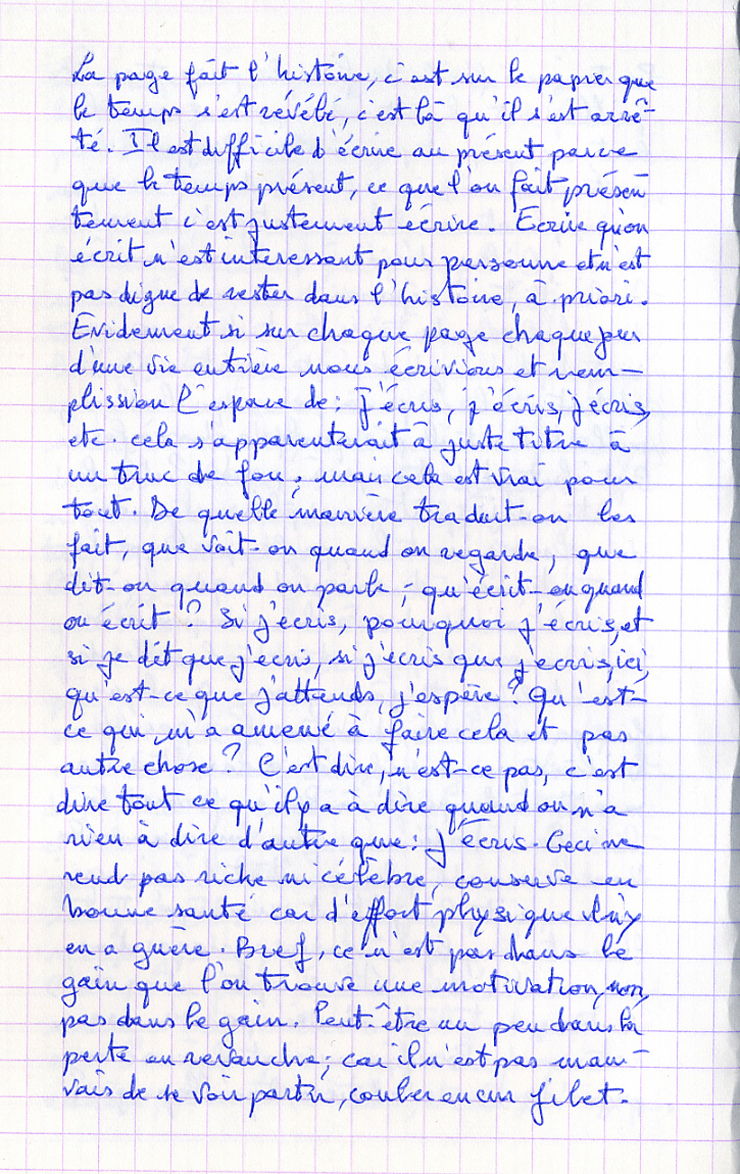 La page fait l'histoire, c'est sur le papier que
le temps s'est révélé, c'est là qu'il s'est arrê-
té. Il est difficile d'écrire au présent parce
que le temps présent, ce que l'on fait présen
tement c'est justement écrire. Ecrire qu'on
écrit n'est interessant pour personne et n'est
pas digne de rester dans l'histoire, à priori.
Evidement si sur chaque page chaque jour
d'une vie entière nous écrivions et rem-
plission l'espace de : j'écris, j'écris, j'écris,
etc. cela s'apparenterait à juste titre à
un truc de fou ; mais cela est vrai pour
tout. De quelle manière traduit-on les
fait, que voit-on quand on regarde, que
dit-on quand on parle ; qu'écrit-on quand
on écrit ? Si j'écris, pourquoi j'écris, et
si je dit que j'écris, si j'écris que j'écris, ici,
qu'est-ce que j'attends, j'espère ? Qu'est-
ce qui m'a amené à faire cela et pas
autre chose ? C'est dire, n'est-ce pas, c'est
dire tout ce qu'il y a à dire quand on n'a
rien à dire d'autre que : j'écris. Ceci ne
rend pas riche ni célèbre, conserve en
bonne santé car d'effort physique il n'y
en a guère. Bref, ce n'est pas dans le
gain que l'on trouve une motivation, non,
pas dans le gain. Peut-être un peu dans la
perte en revanche ; car il n'est pas mau-
vais de se voir partir, couler en un filet.